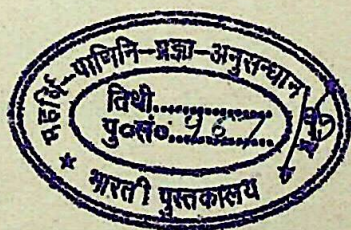 महर्षि-पाणिनि-प्रज्ञा-अनुसन्धान
तिथी..............
पु०सं०
* भारती पुस्तकालय *